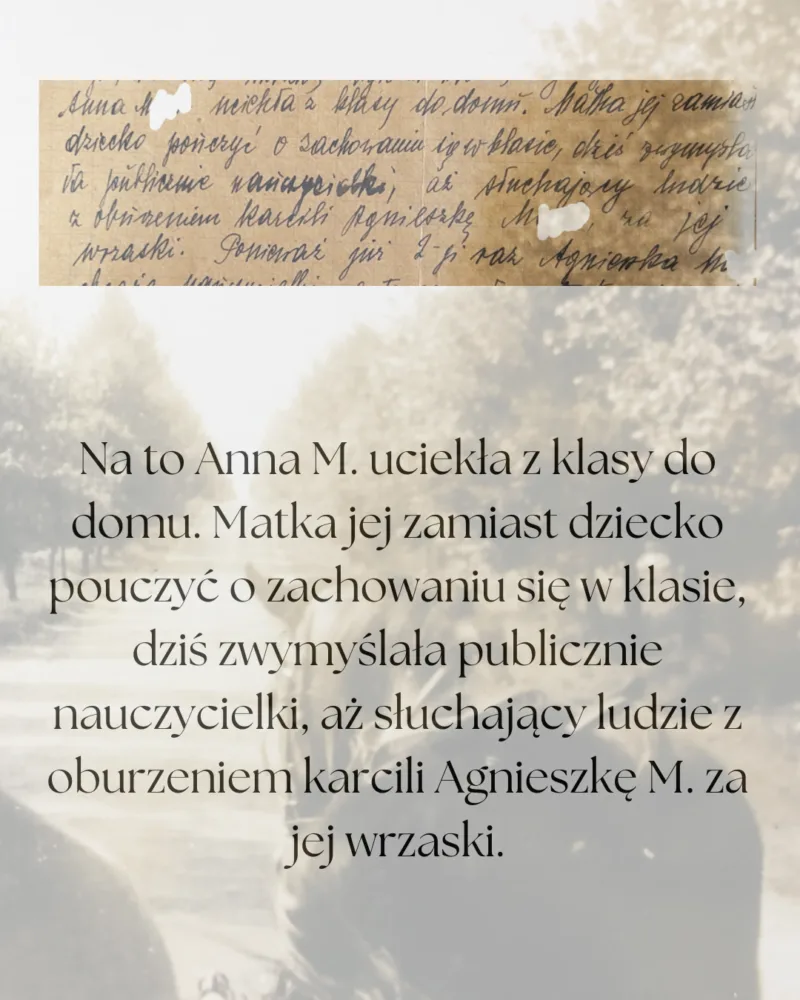 Anna M uciekła z klasy do domu. Matka jej zamiast
dziecko pouczyć o zachowaniu się w klasie, dziś zwymyśla
ła publicznie nauczycielki, aż słuchający ludzie
z oburzeniem karcili Agnieszkę M , za jej
wrzaski. Ponieważ już 2-gi raz Agnieszka M
Na to Anna M. uciekła z klasy do
domu. Matka jej zamiast dziecko
pouczyć o zachowaniu się w klasie,
dziś zwymyślała publicznie
nauczycielki, aż słuchający ludzie z
oburzeniem karcili Agnieszkę M. za
jej wrzaski.